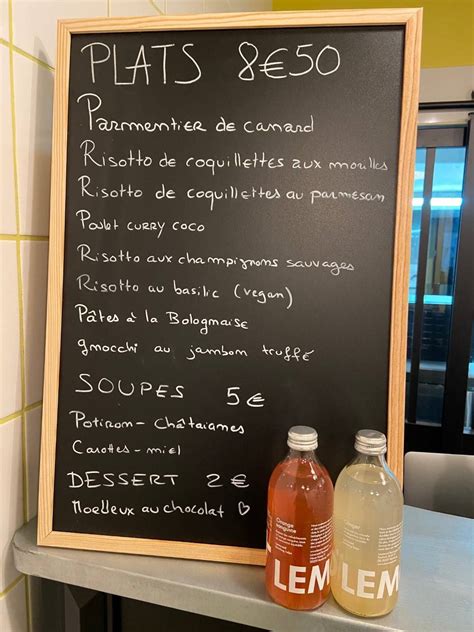 PLATS 8€50
Parmentier de canard
Risotto de coquillettes aux morilles
Risotto de coquillettes au parmesan
Poulet curry coco
Risotto aux champignons sauvages
Risotto au basilic (vegan)
Pâtes à la Bolognaise
gnocchi au jambon truffé
SOUPES 5€
Potiron - châtaignes
Carottes - miel
DESSERT 2€
Moelleux au chocolat ♡
Orange sanguine
LEM
Ginger
LEM